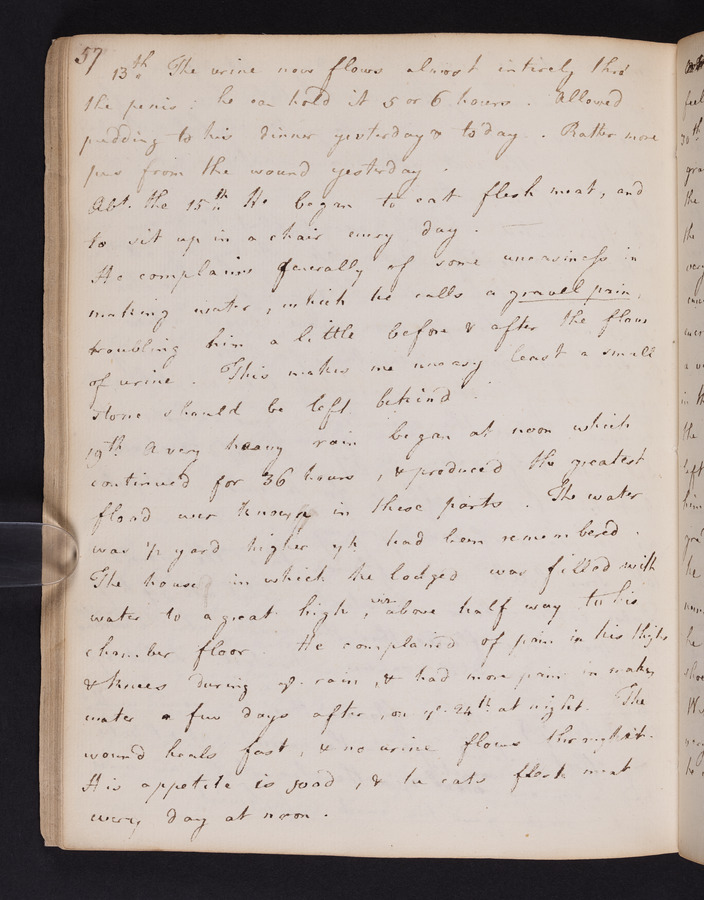 57
13th. The urine now flows almost intirely thro'
the penis: he can hold it 5 or 6 hours. Allowed
pudding to his dinner yesterday & to day. Rather more
pus from the wound yesterday.
Abt. the 15th. He began to eat flesh meat, and
to sit up in a chair every day.
He complains generally of some uneasiness in
making water, which he calls a gravell pain,
troubling him a little before & after the flow
of urine. This makes me uneasy least a small
stone should be left behind.
19th A very heavy rain began at noon which
continued for 36 hours, & produced the greatest
flood ever known in these parts. The water
was ½ yard higher yn had been remembered.
The house in which he lodged was filled with
water to a great high, viz. above half way to his
chamber floor. He complained of pain in his thighs
& knees during ye. rain, & had more pain in making
water a few days after, on ye. 24th at night. The
wound heals fast, & no urine flows through it.
His appetite is good, & he eats flesh meat
every day at noon.